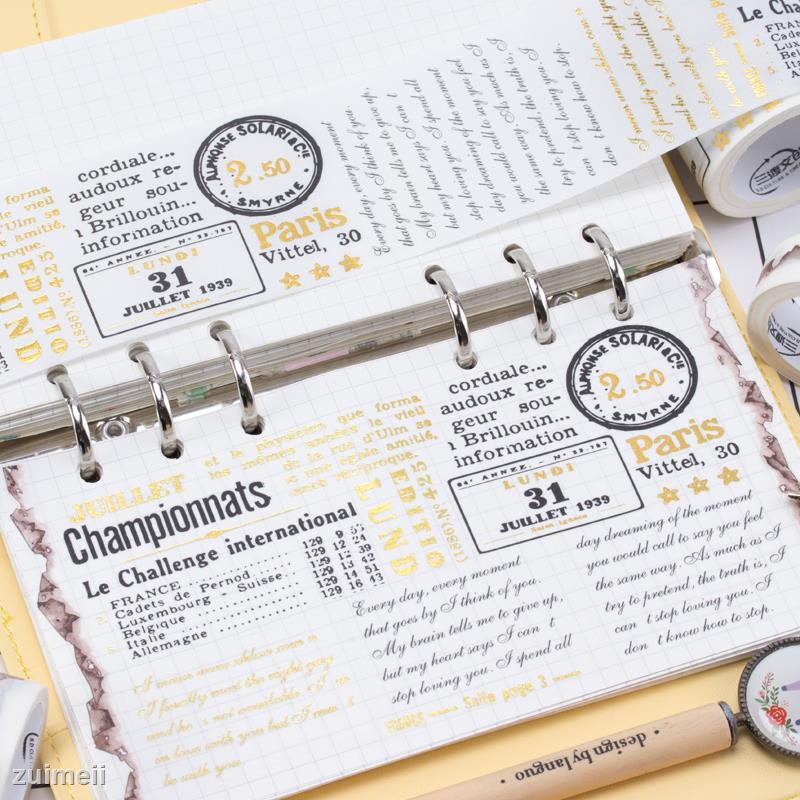 Le Cha
cordiale...
audoux re-
geur sou-
Brillouin...
information
ALPHONSE SOLARI & CIE
2.50
SMYRNE
Paris
Vittel, 30
64e ANNEE. - No 22.787
LUNDI
31
JUILLET 1939
forma
le vieil
d'Ulm se
amitié,
roque.
LUND
EDITIO
Every day, every moment
that goes by, I think of you.
My brain tells me to give up,
but my heart says I can t
stop loving you. I spend all
day dreaming of the moment
you would call to say you feel
the same way. As much as I
try to pretend, the truth is, I
can t stop loving you. I
don t know how to stop.
JUILLET
et le physicien que forma
les mêmes années le vieil
de la rue d'Ulm se
une égale amitié,
réciproque.
Championnats
Le Challenge international
FRANCE 129 9 53
Cadets de Pernod 129 12 24
Luxembourg - Suisse 129 12 39
Belgique 129 13 42
Italie 129 14 51
Allemagne 129 16 43
LUND
EDITIO
(1886) No 425
cordiale...
audoux re-
geur sou-
Brillouin...
information
ALPHONSE SOLARI & CIE
2.50
SMYRNE
Paris
Vittel, 30
64e ANNEE. - No 22.787
LUNDI
31
JUILLET 1939
Every day, every moment
that goes by I think of you.
My brain tells me to give up,
but my heart says I can t
stop loving you. I spend all
day dreaming of the moment
you would call to say you feel
the same way. As much as I
try to pretend, the truth is, I
can t stop loving you. I
don t know how to stop.
be with you.
FRANCE Suite page 3
design by languo
zuimeii